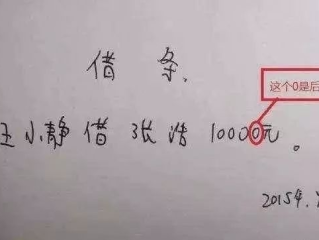 借条.
这个0是后
王小静借张浩10000元。
2015年.